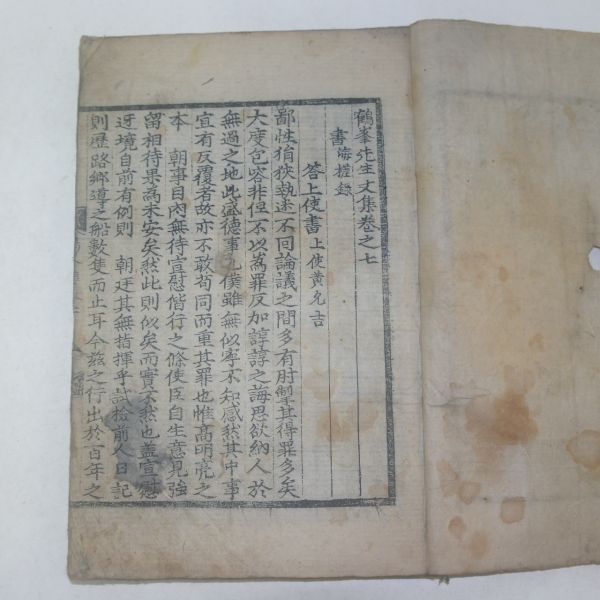 鶴峯先生文集卷之七
書 海槎錄
答上使書 上使黃允吉
鄙性狷狹執迷不回論議之間多有肘掣其得罪多矣
大度包容非但不以為罪反加諄諄之誨思欲納人於
無過之地此盛德事也僕雖無似寧不知感然其中事
宜有反覆者故亦不敢苟同而重其罪也惟高明亮之
本 朝事目內無待宣慰偕行之條使臣自生意見強
留相待果為未安矣然此則似矣而實不然也盖宣慰
迓境自前有例則 朝廷其無指揮乎試撿前人日記
則歷路鄉導之船數隻而止耳今玆之行出於百年之